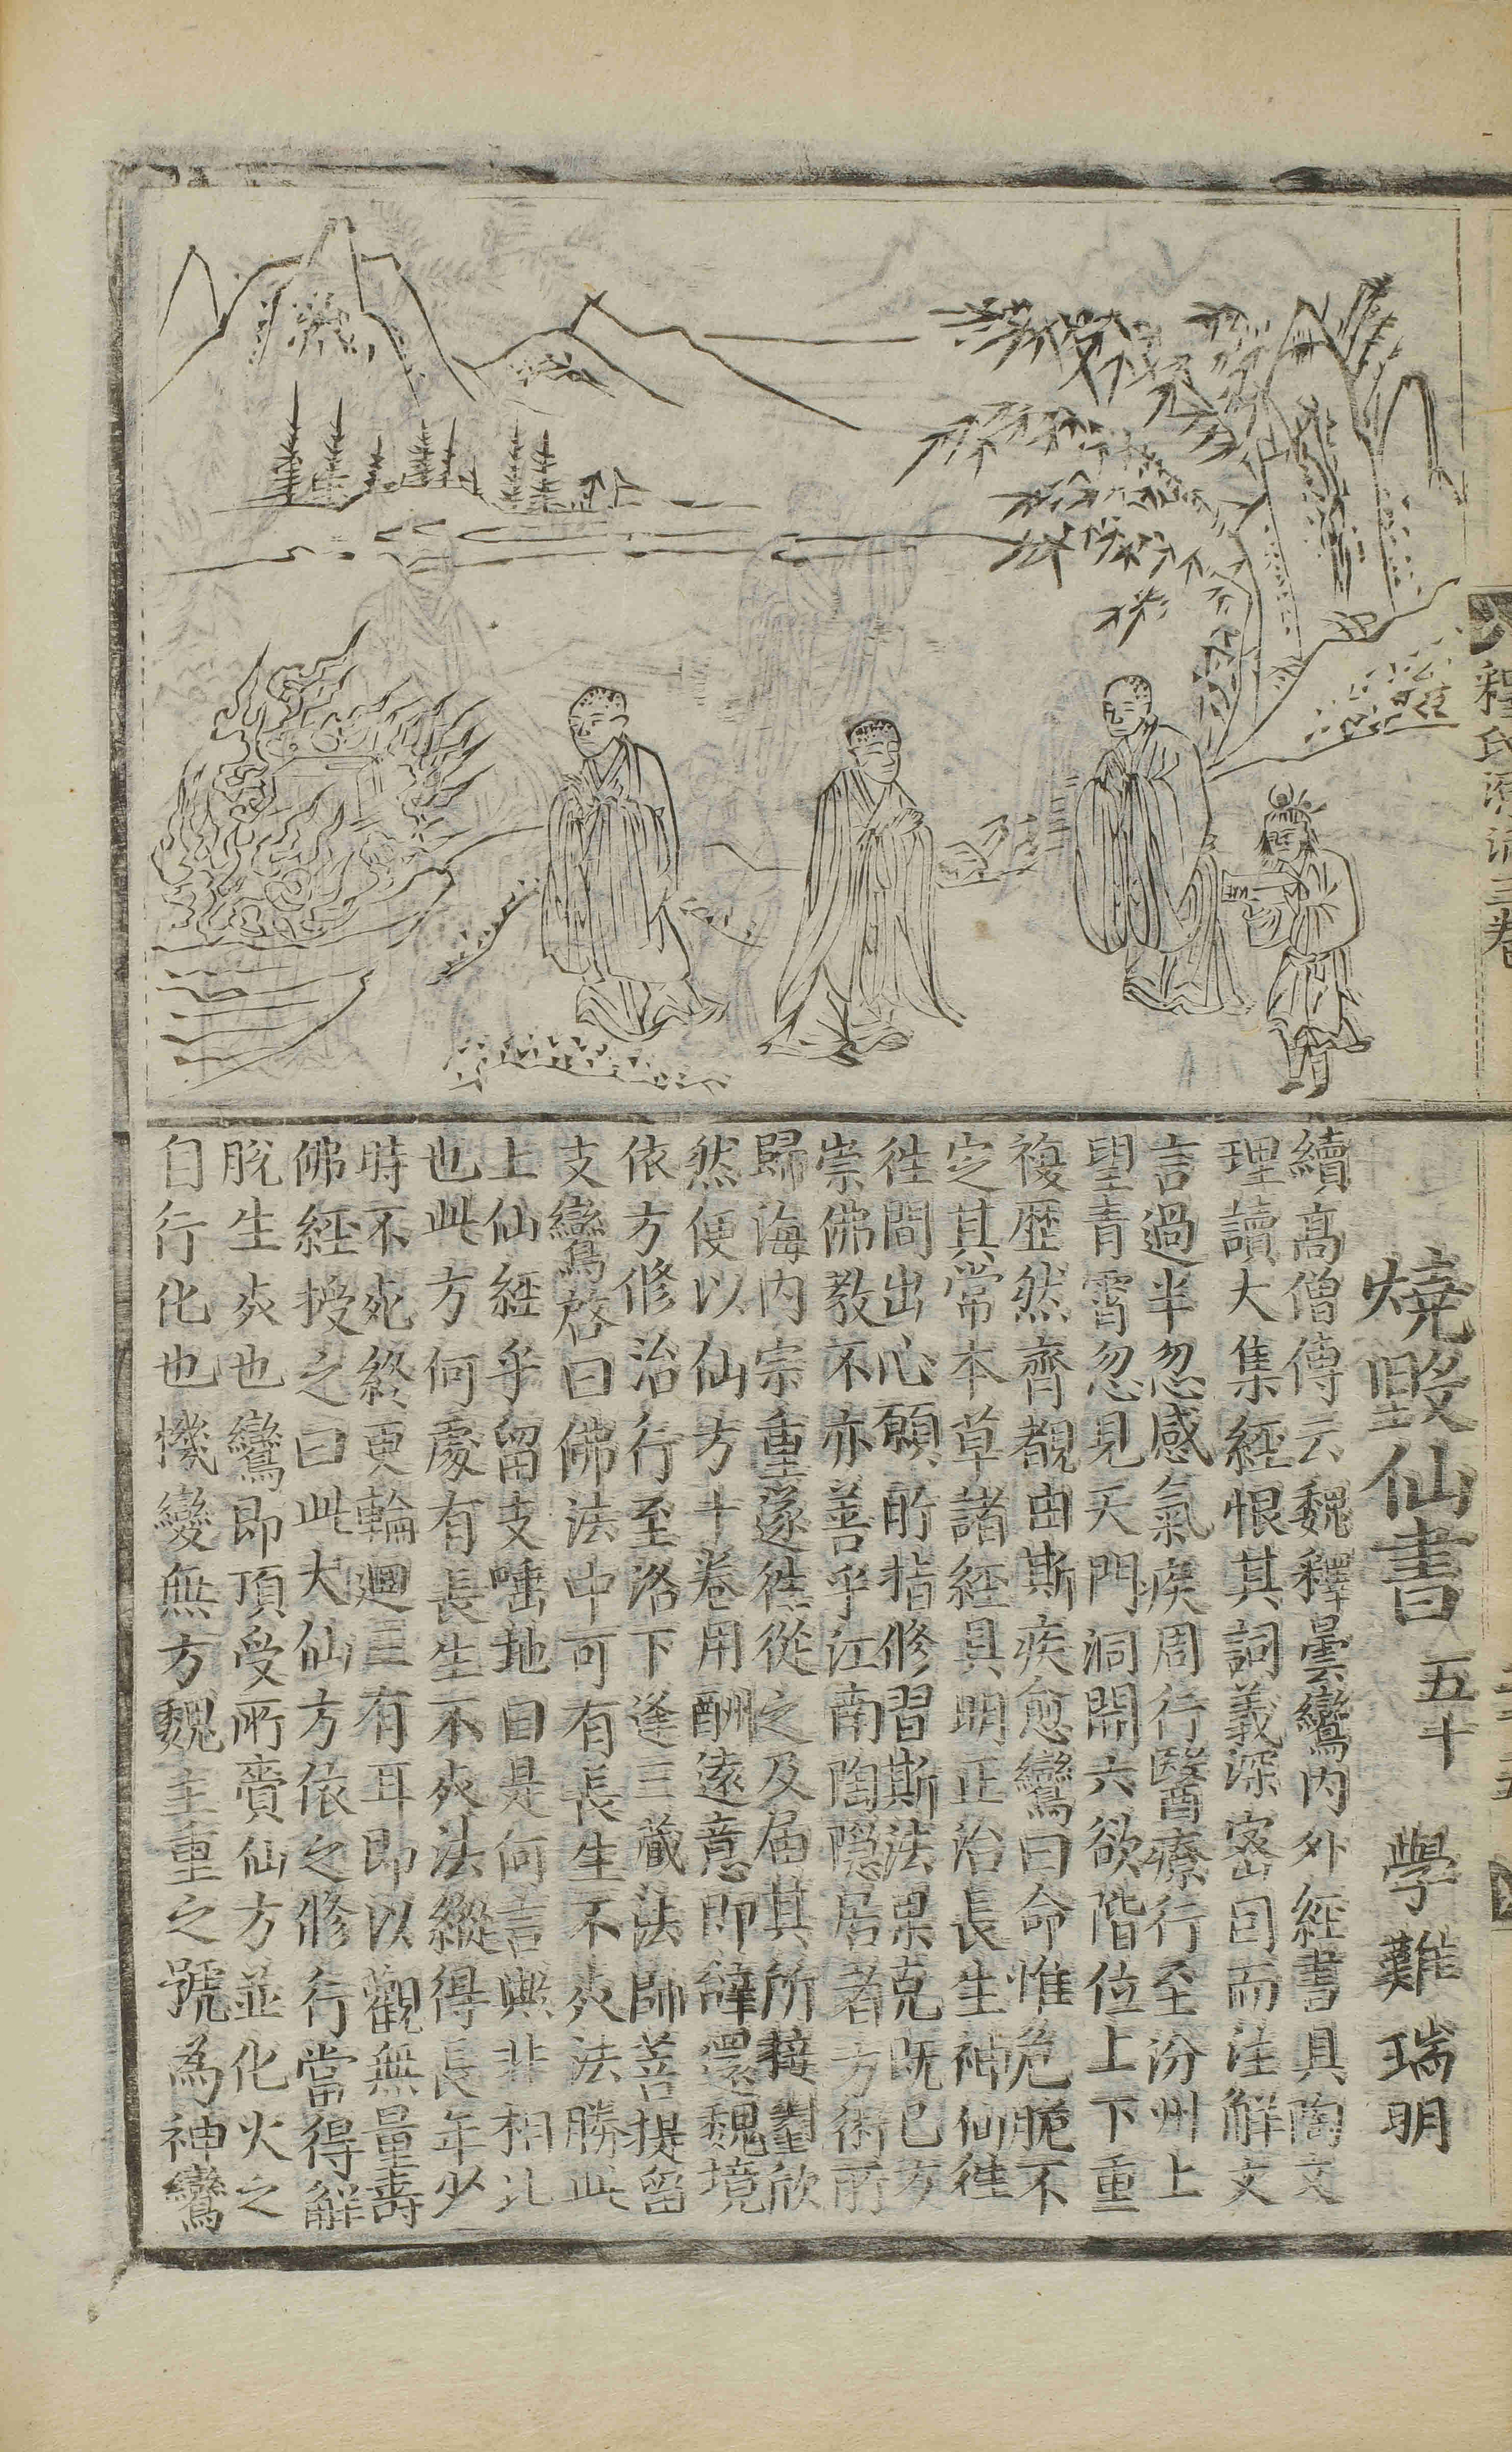 釋氏源流三卷
燒毀仙書 五十 學難瑞明
續高僧傳云魏釋曇鸞內外經書具陶文
理讀大集經恨其詞義深密因而注解文
言過半忽感氣疾周行醫療行至汾州上
望青霄忽見天門洞開六欲階位上下重
複歷然齊覩由斯疾愈鸞曰命惟危脆不
定其常本草諸經具明正治長生神仙徃
徃間出心願所指修習斯法果克旣已方
崇佛教不亦善乎江南陶隱居者方術所
歸海內宗重遂徃從之及屆其所接對欣
然便以仙方十卷用酬遠意即辭還魏境
依方修治行至洛下逢三藏法師菩提留
支鸞啓曰佛法中可有長生不死法勝此
上仙經乎留支唾地曰是何言歟非相比
也此方何處有長生不死法縱得長年少
時不死終更輪迴三有耳即以觀無量壽
佛經授之曰此大仙方依之修行當得解
脫生死也鸞即頂受所賫仙方並化火之
自行化也機變無方魏主重之號為神鸞